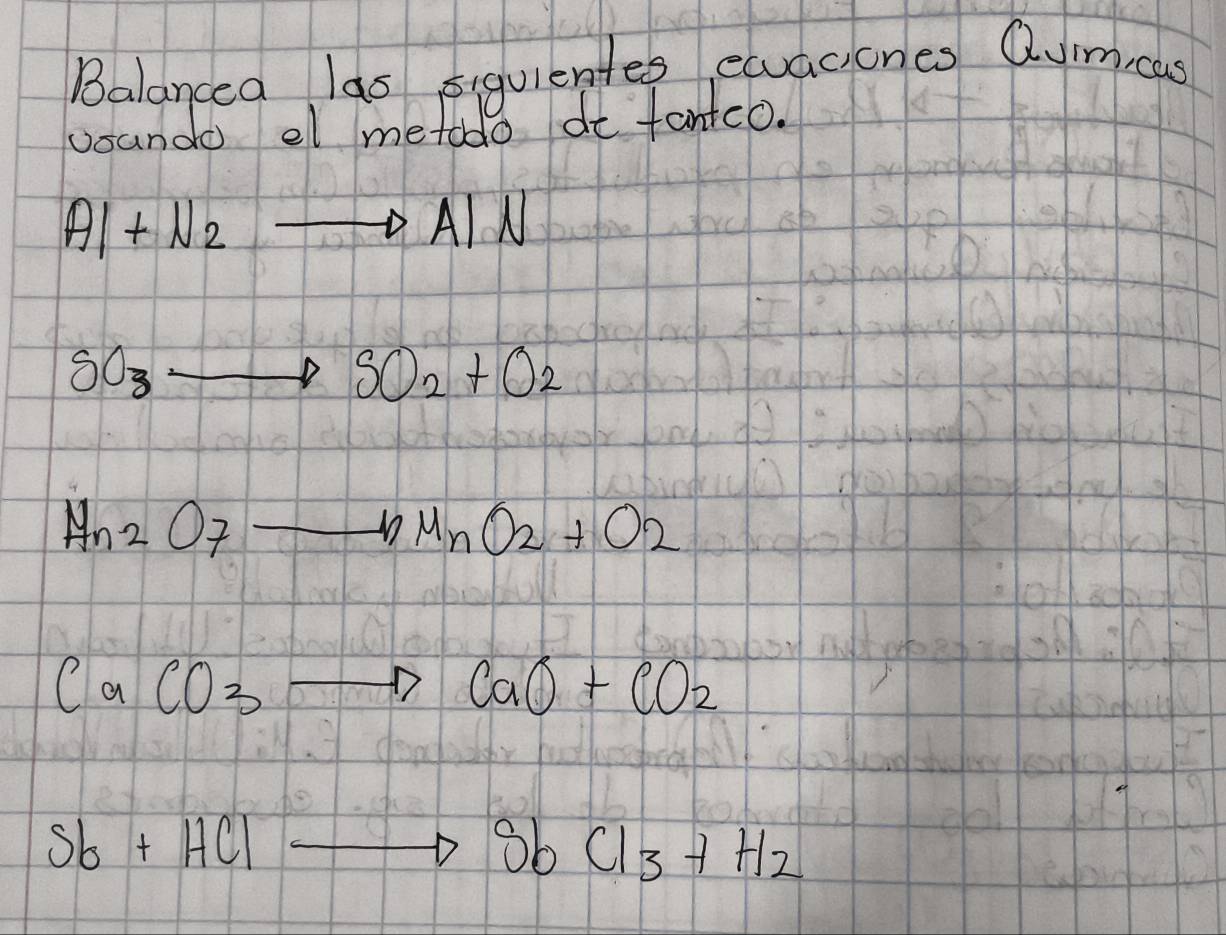 Balancea las siguientes ecuaciones Quimicas
usando el metodo de tanteo.
Al + N2 → Al N
SO3 → SO2 + O2
Mn2 O7 → MnO2 + O2
Ca CO3 → CaO + CO2
Sb + HCl → Sb Cl3 + H2